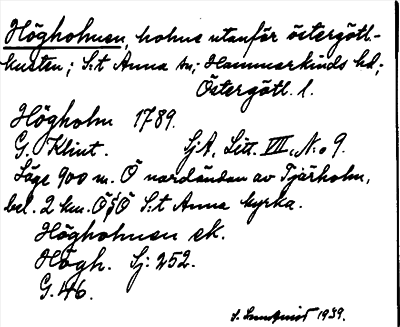 Högholmen, holme utanför östergötl.-
kusten; S:t Anna sn; Hammarkinds hd;
Östergötl. l.
Högholm 1789.
G. Klint. SjA, Litt. VIII, No 9.
Läge 900 m. Ö nordändan av Tjärholm,
bel. 2 km. ÖSÖ S:t Anna kyrka.
Högholmen ek.
Högh. Sj: 252.
G. 46.
S. 1939.